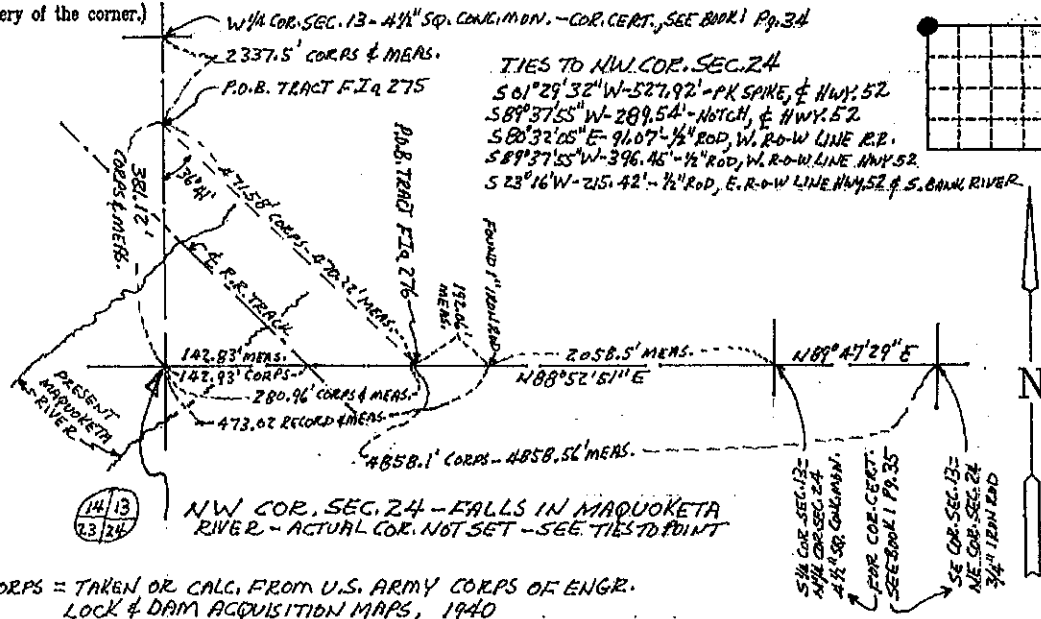 ery of the corner.)
W 1/4 COR. SEC. 13 - 4 1/2" SQ. CONC. MON. - COR. CERT., SEE BOOK 1 Pg. 34
2337.5' CORPS & MEAS.
P.O.B. TRACT F.Ia 275
TIES TO NW. COR. SEC. 24
S 01°29'32" W - 527.92' - PK SPIKE, ℄ HWY. 52
S 89°37'55" W - 289.54' - NOTCH, ℄ HWY. 52
S 80°32'05" E - 91.07' - 1/2" ROD, W. R-O-W LINE R.R.
S 89°37'55" W - 396.45' - 1/2" ROD, W. R-O-W LINE HWY 52
S 23°16' W - 215.42' - 1/2" ROD, E. R-O-W LINE HWY. 52 & S. BANK RIVER
36°41'
381.12'
CORPS & MEAS.
471.58' CORPS - 470.22' MEAS.
℄ R.R. TRACK
P.O.B. TRACT FIa 276
192.06'
MEAS.
FOUND 1" IRON ROD
142.83' MEAS.
142.93' CORPS
280.96' CORPS & MEAS.
473.02 RECORD & MEAS.
2058.5' MEAS.
N 88°52'51" E
N 89°47'29" E
4858.1' CORPS - 4858.56' MEAS.
PRESENT
MAQUOKETA
RIVER
N
14 13
23 24
NW COR. SEC. 24 - FALLS IN MAQUOKETA
RIVER - ACTUAL COR. NOT SET - SEE TIES TO POINT
S 1/4 COR SEC. 13 =
N 1/4 COR. SEC. 24
4 1/2" SQ. CONC. MON.
FOR COR. CERT.
SEE BOOK 1 Pg. 35
SE COR. SEC. 13 =
NE COR. SEC. 24
3/4" IRON ROD
ORPS = TAKEN OR CALC. FROM U.S. ARMY CORPS OF ENGR.
LOCK & DAM ACQUISITION MAPS, 1940